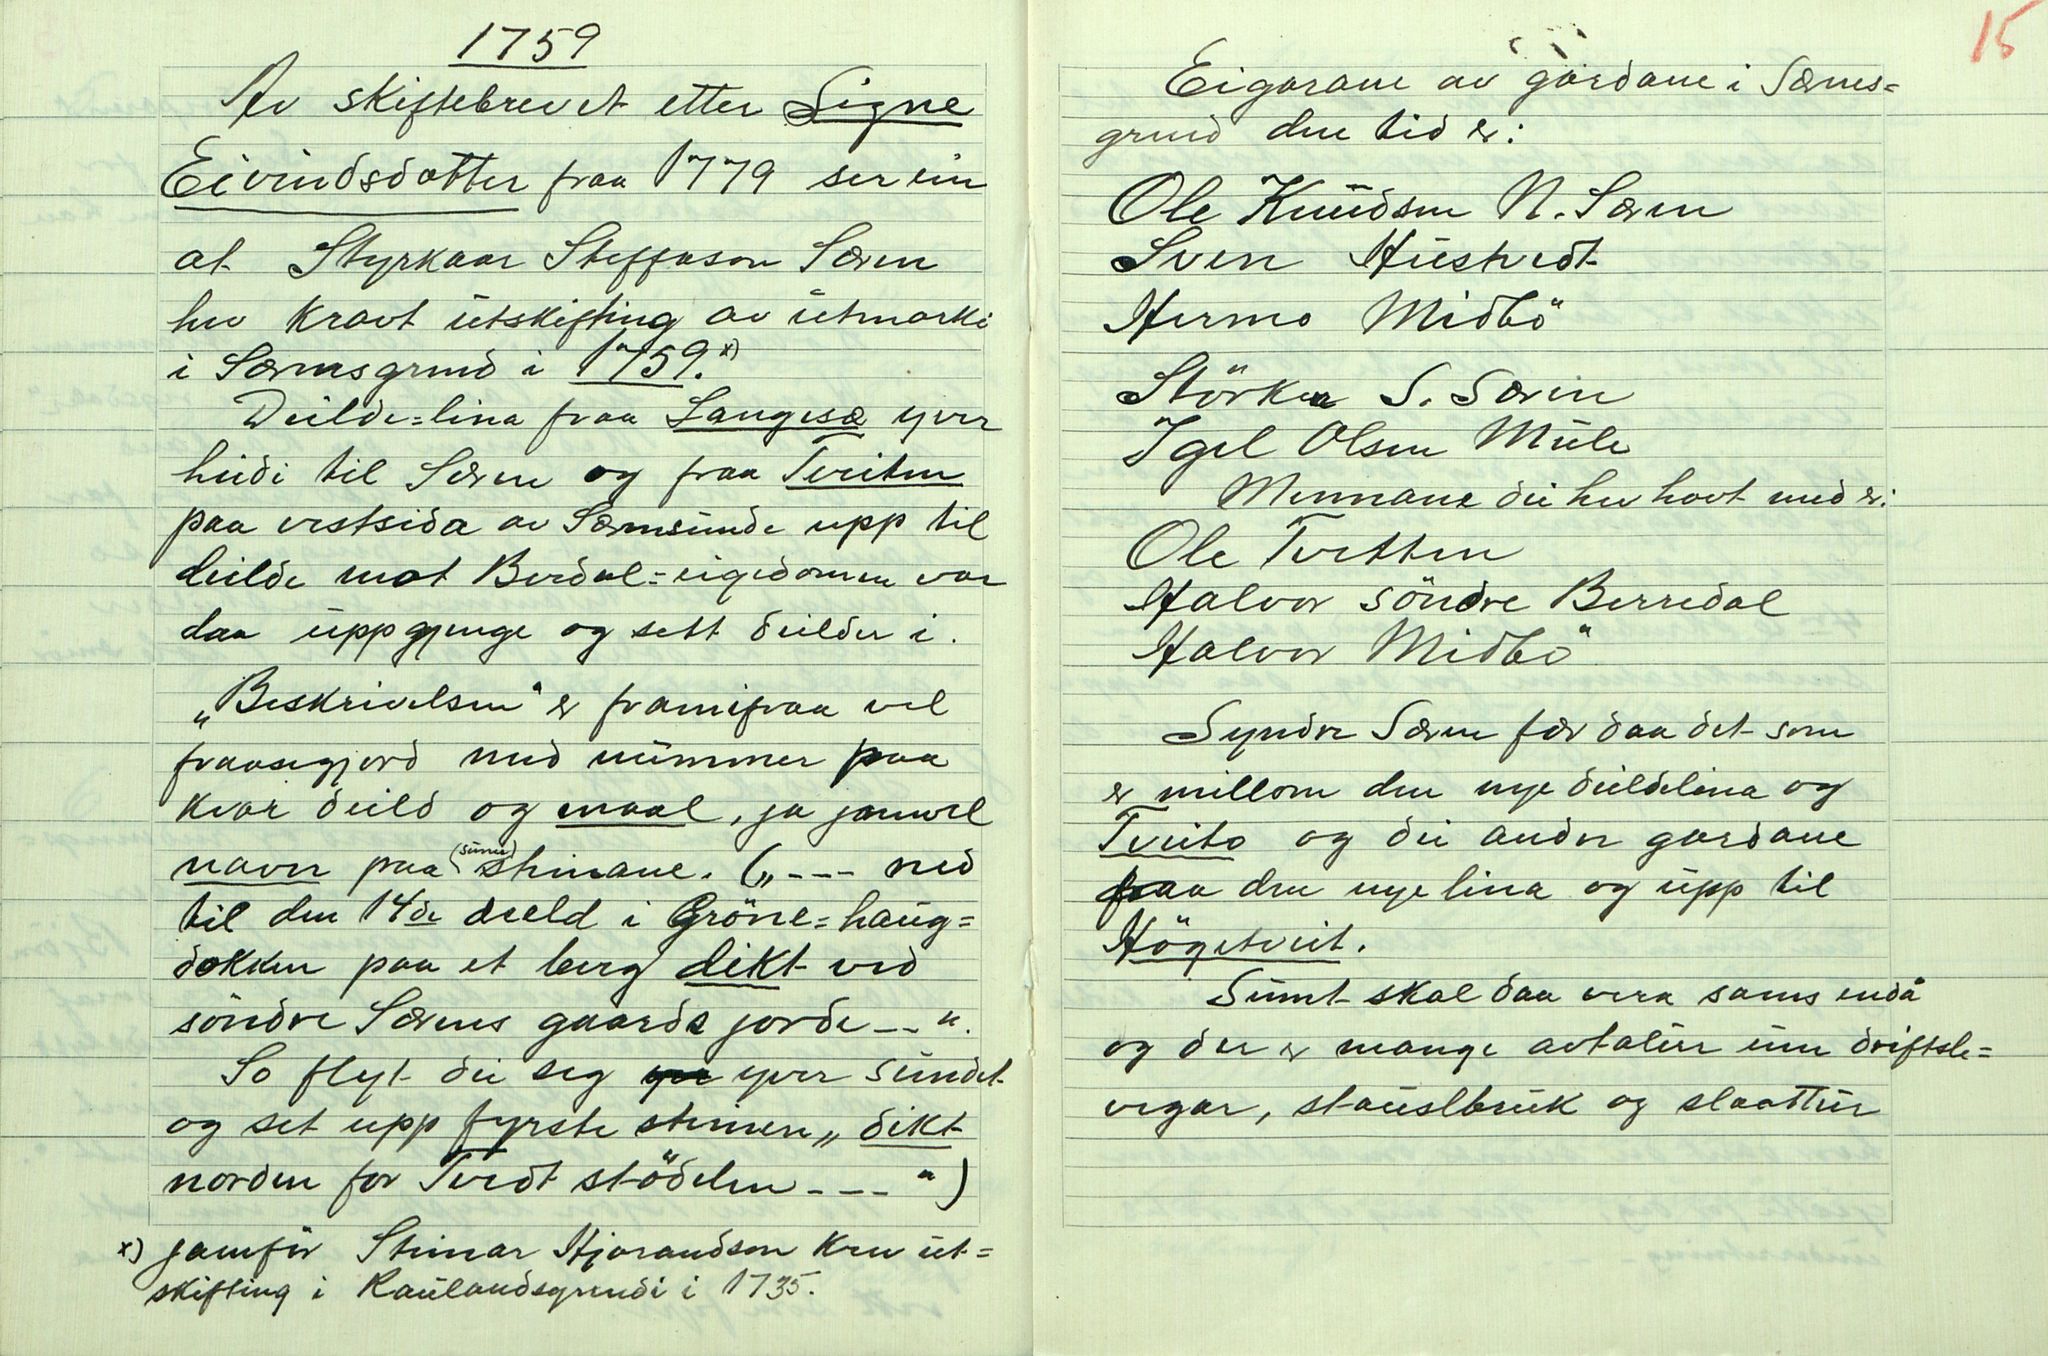 1759
Av skiftebrevet etter Signe
Eivindsdotter fraa 1779 ser ein
at Styrkaar Steffason Særen
hev kravt utskifting av utmarki
i Særensgrend i 1759.x)
Deilde=lina fraa Langesæ yver
heidi til Særen og fraa Tveiten
paa vestsida av Særensunde upp til
deilde mot Berdal=eigedomen var
daa uppgjenge og sett deilder i.
„Beskrivelsen" er framifraa vel
fraasegjord med nummer paa
kvar deild og maal, ja jamvel
navn paa (sume) steinane. („--- ned
til den 14de deeld i Gröne=haug=
dokken paa et berg dikt ved
söndre Særens gaards jorde --".
So flyt dei seg yver sundet
og set upp fyrste steinen „dikt
norden for Tvedt stödelen ---")
x) jamför Steinar Hjorandson krev ut=
skifting i Raulandsgrendi i 1735.
15
Eigarane av gardane i Særens=
grend den tid er:
Ole Knudsen N. Særen
Sven Hustvedt
Hermo Midbö
Störker S. Særen
Igel Olsen Mule
Mennane dei hev havt med er:
Ole Tvetten
Halvor söndre Berredal
Halvor Midbö
Syndre Særen fær daa det som
er millom den nye deildelina og
Tveito og dei andre gardane
fraa den nye lina og upp til
Högetveit.
Sumt skal daa vera sams endå
og der er mange avtalur um driftsle=
vegar, stauslbruk og slaattur